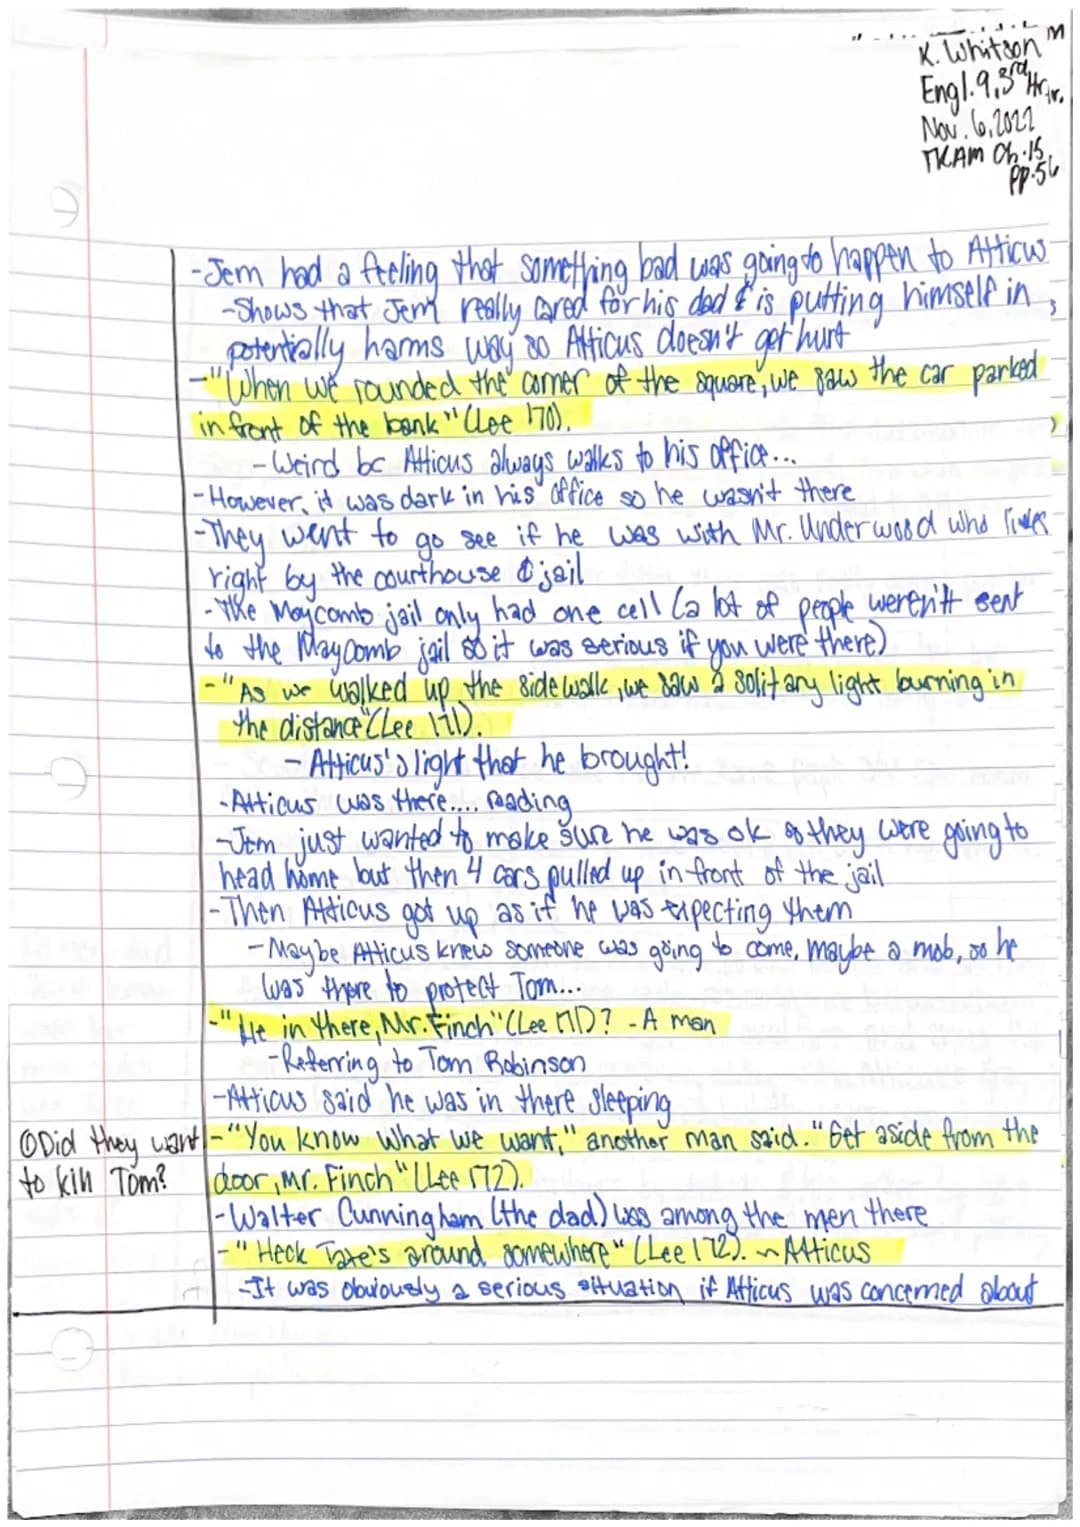 K. Whitson
Engl. 9, 3rd Hr.
Nov. 6, 2022
TKAM Ch. 15
pp. 56
- Jem had a feeling that something bad was going to happen to Atticus
- Shows that Jem really cared for his dad & is putting himself in
potentially harms way so Atticus doesn't get hurt
- "When we rounded the corner of the square, we saw the car parked
in front of the bank" (Lee 170).
- Weird bc Atticus always walks to his office...
- However, it was dark in his office so he wasn't there
- They went to go see if he was with Mr. Underwood who lives
right by the courthouse & jail
- The Maycomb jail only had one cell (a lot of people weren't sent
to the Maycomb jail so it was serious if you were there)
- "As we walked up the sidewalk, we saw a solitary light burning in
the distance" (Lee 171).
- Atticus's light that he brought!
- Atticus was there.... reading
- Jem just wanted to make sure he was ok so they were going to
head home but then 4 cars pulled up in front of the jail
- Then Atticus got up as if he was expecting them
- Maybe Atticus knew someone was going to come, maybe a mob, so he
was there to protect Tom...
- "He in there, Mr. Finch" (Lee 171)? - A man
- Referring to Tom Robinson
- Atticus said he was in there sleeping
① Did they want
to kill Tom?
- "You know what we want," another man said. "Get aside from the
door, Mr. Finch" (Lee 172).
- Walter Cunningham (the dad) was among the men there
- "Heck Tate's around somewhere" (Lee 172). ~ Atticus
- It was obviously a serious situation if Atticus was concerned about